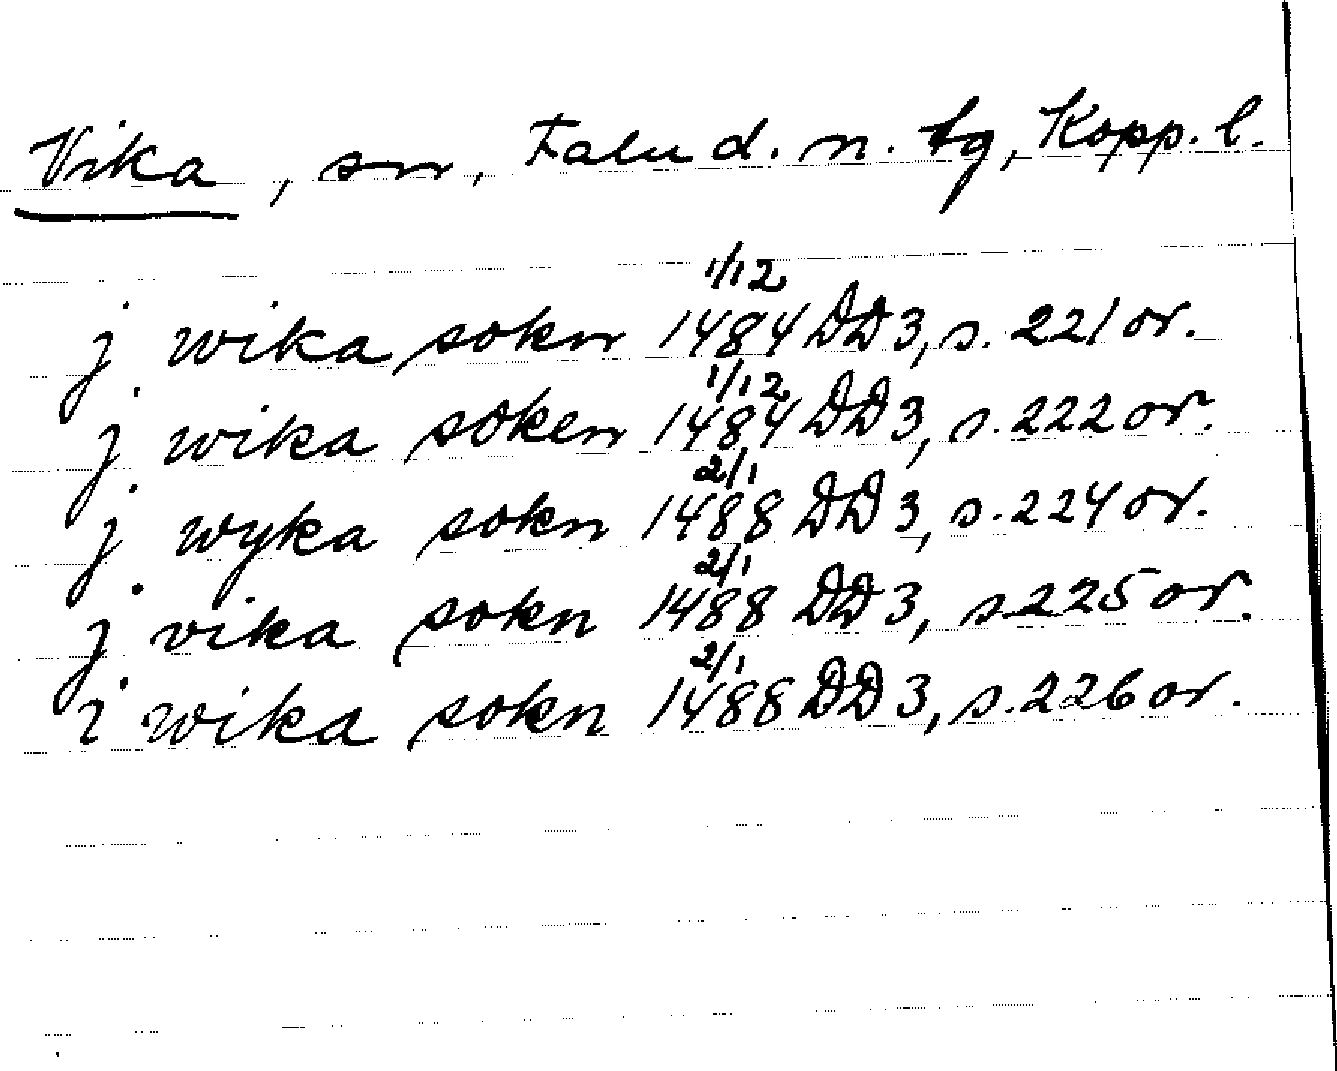 Vika, sn, Falu d. n. tg, Kopp. l.
j wika sokn 1/12 1484 DD 3, s. 221 or.
j wika soken 1/12 1484 DD 3, s. 222 or.
j wyka sokn 2/1 1488 DD 3, s. 224 or.
j vika sokn 2/1 1488 DD 3, s. 225 or.
i wika sokn 2/1 1488 DD 3, s. 226 or.